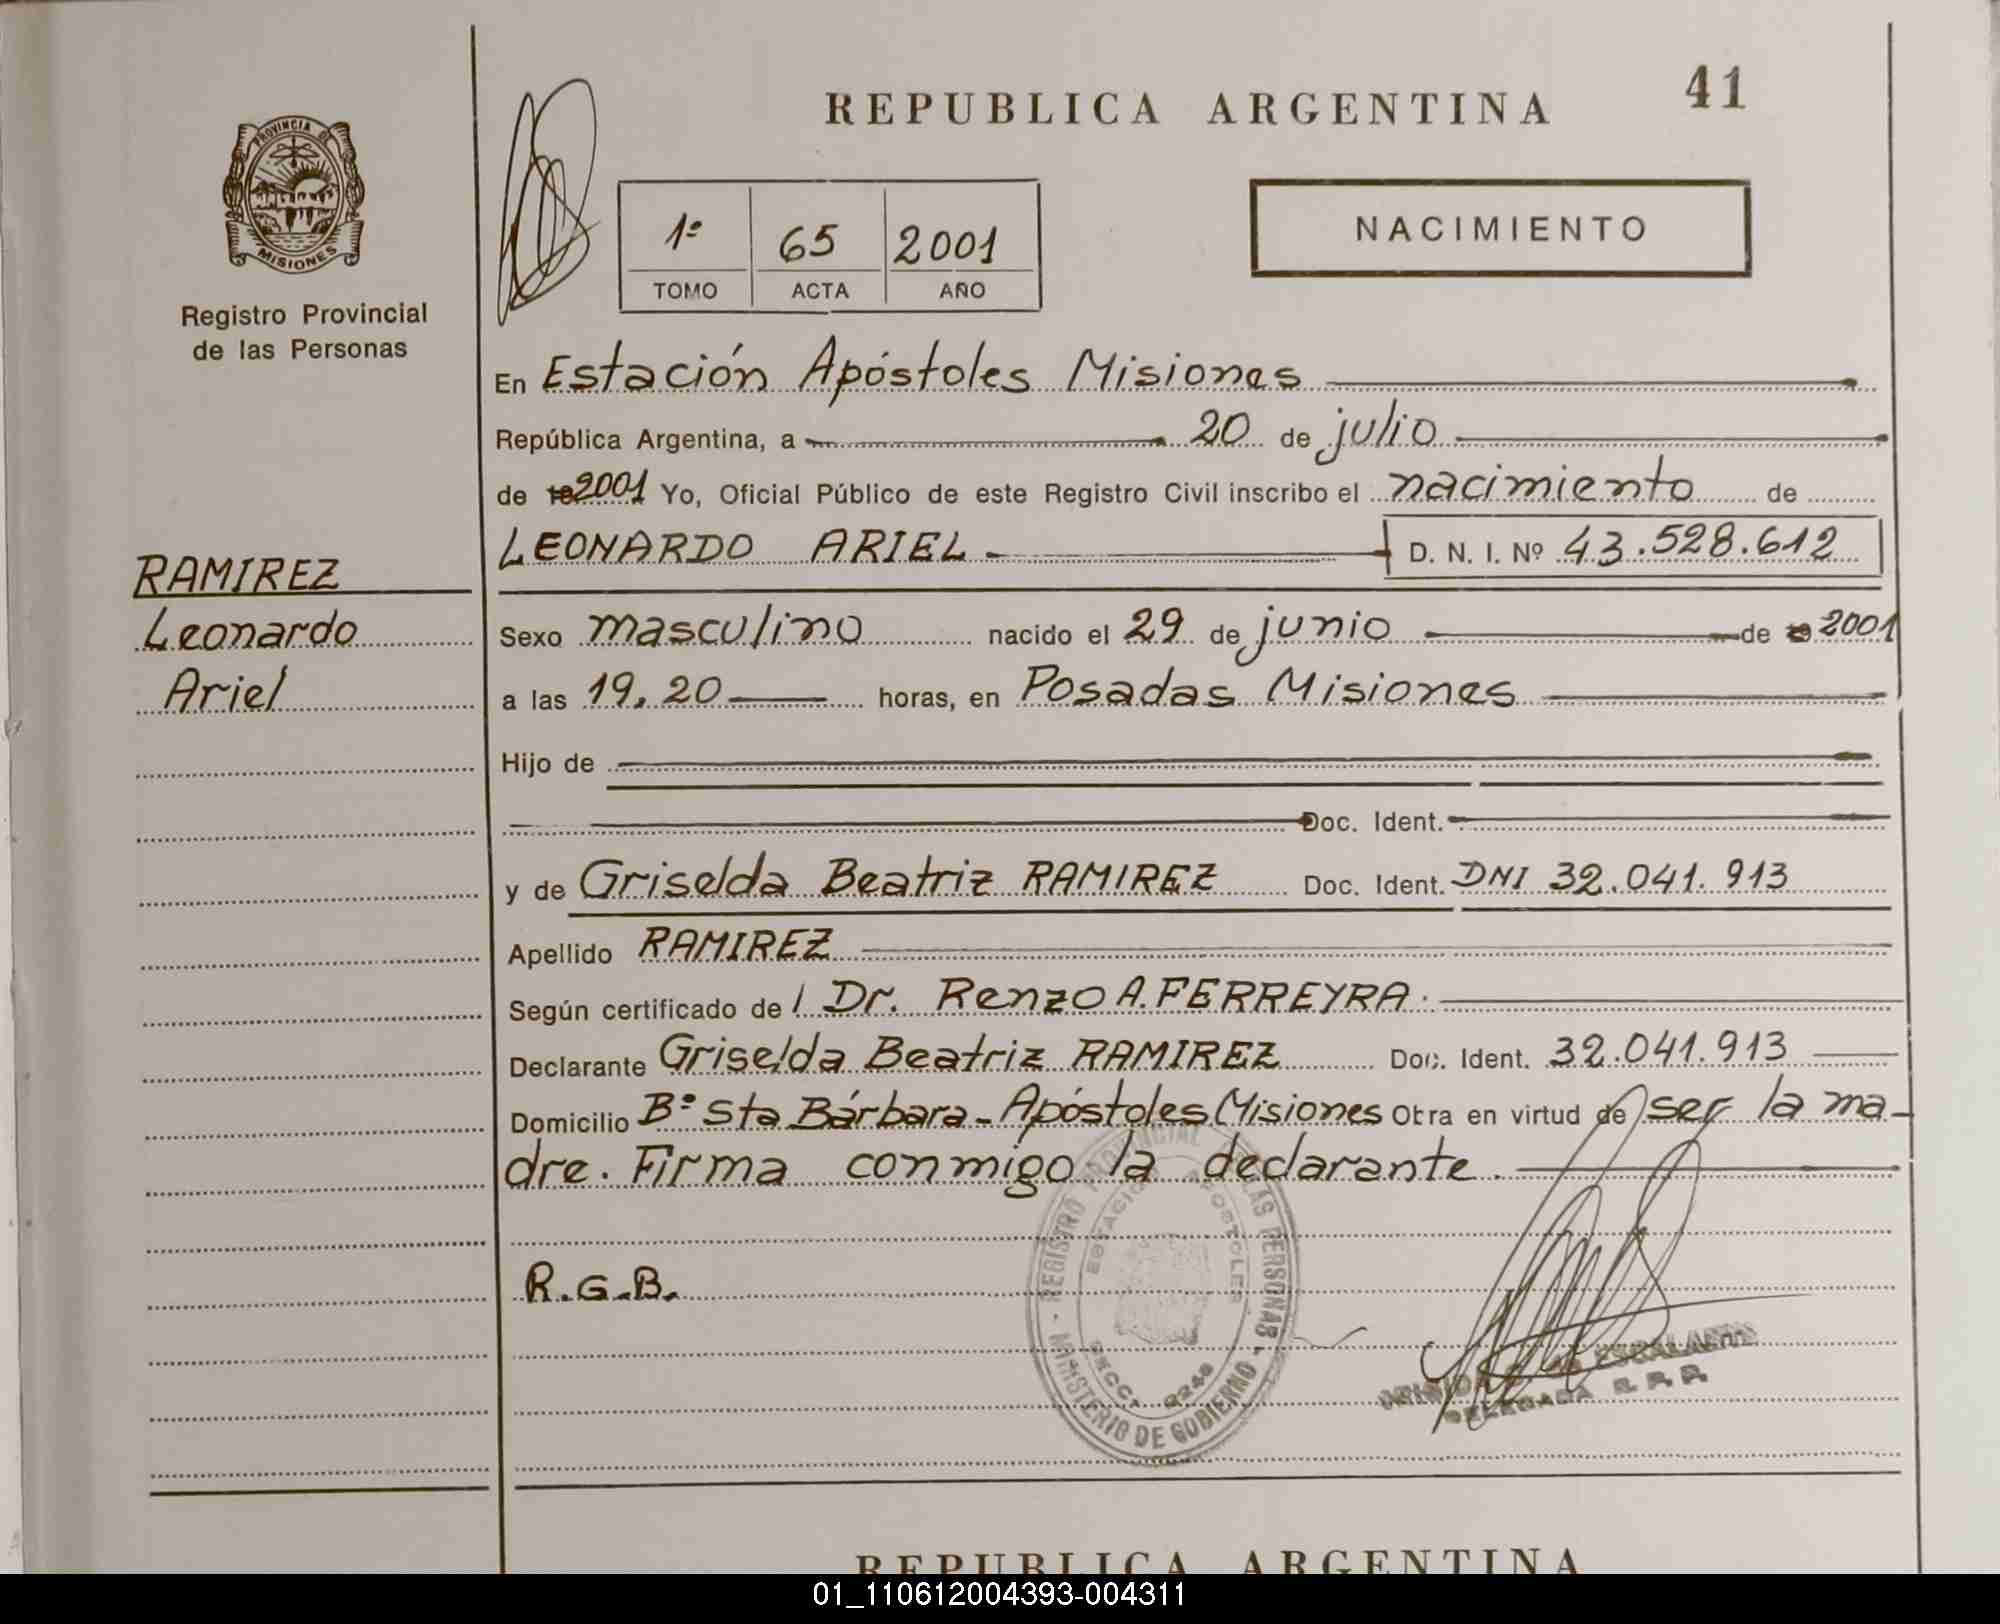 41
REPUBLICA ARGENTINA
PROVINCIA DE
MISIONES
Registro Provincial
de las Personas
1º 65 2001
TOMO ACTA AÑO
NACIMIENTO
En Estación Apóstoles Misiones
República Argentina, a 20 de julio
de 2001 Yo, Oficial Público de este Registro Civil inscribo el nacimiento de
LEONARDO ARIEL D. N. I. Nº 43.528.612
RAMIREZ
Leonardo
Ariel
Sexo masculino nacido el 29 de junio de 2001
a las 19,20 horas, en Posadas Misiones
Hijo de
Doc. Ident.
y de Griselda Beatriz RAMIREZ Doc. Ident. DNI 32.041.913
Apellido RAMIREZ
Según certificado de l Dr. Renzo A. FERREYRA.
Declarante Griselda Beatriz RAMIREZ Doc. Ident. 32.041.913
Domicilio Bº Sta Bárbara - Apóstoles Misiones Obra en virtud de ser la ma-
dre. Firma conmigo la declarante.
R.G.B.
REGISTRO PROVINCIAL DE LAS PERSONAS - MINISTERIO DE GOBIERNO -
ESTACION APOSTOLES
ESCALANTE
DELEGADA R. P. P.
REPUBLICA ARGENTINA
01_110612004393-004311